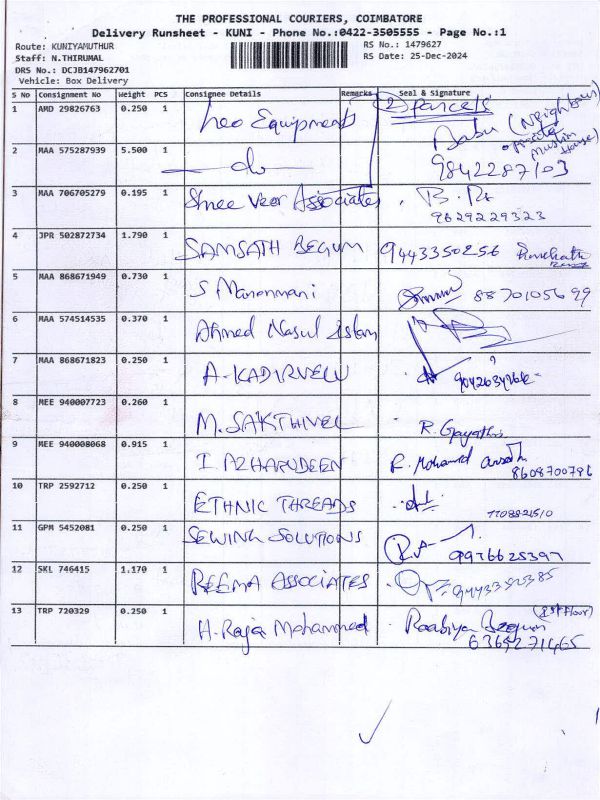 THE PROFESSIONAL COURIERS, COIMBATORE
Delivery Runsheet - KUNI - Phone No.:0422-3505555 - Page No.:1
Route: KUNIYAMUTHUR
RS No.: 1479627
Staff: N.THIRUMAL
RS Date: 25-Dec-2024
DRS No.: DCJB147962701
Vehicle: Box Delivery
S No Consignment No Weight PCS Consignee Details Remarks Seal & Signature
1 AMD 29826763 0.250 1 Leo Equipments (2) Parcels
Babu (Neighbour Muslim House)
2 MAA 575287939 5.500 1 do 9842287103
3 MAA 706705279 0.195 1 Shree Veer Associates B.
9629229323
4 JPR 502872734 1.790 1 SAMSATH BEGUM 9443350256
5 MAA 868671949 0.730 1 S Manonmani 8870105699
6 MAA 574514535 0.370 1 Ahmed Nasul Islam
7 MAA 868671823 0.250 1 A. KADIRVELU
8 MEE 940007723 0.260 1 M. SAKTHIVEL R. Gayathri
9 MEE 940008068 0.915 1 I AZHARUDEEN F. Mohamed
8608700796
10 TRP 2592712 0.250 1 ETHNIC THREADS
11 GPM 5452081 0.250 1 SEWING SOLUTIONS 9976625397
12 SKL 746415 1.170 1 REEMA ASSOCIATES 9443350385
13 TRP 720329 0.250 1 H. Raja Mohammed Raabiya Begum (1st Floor)
6369271465